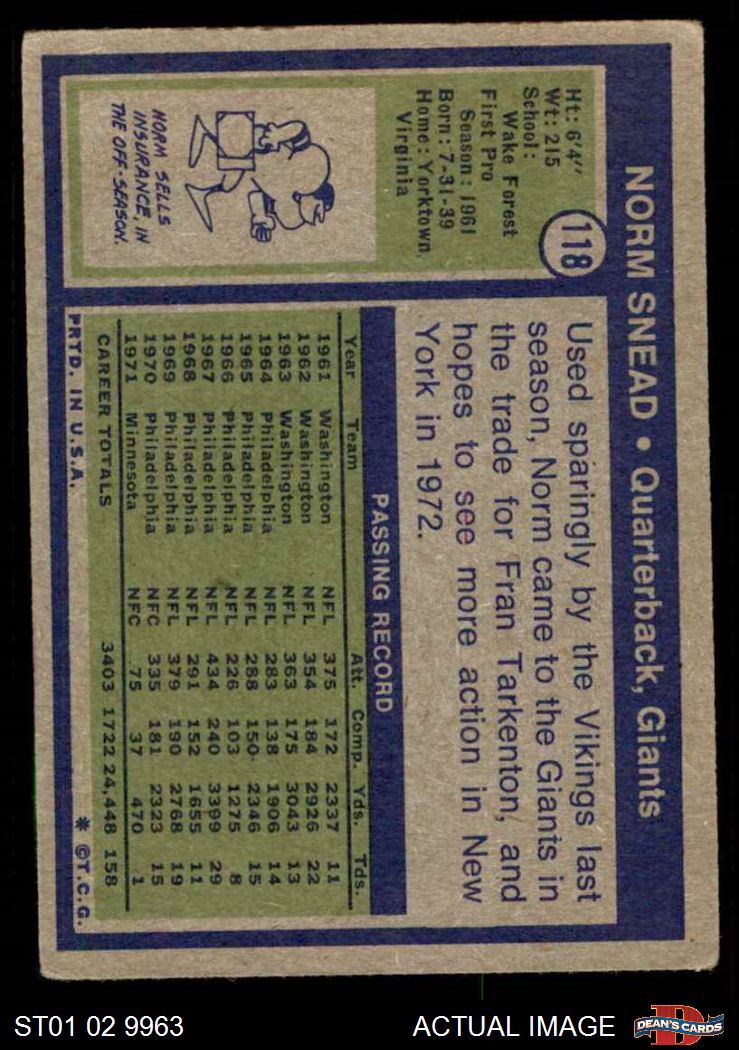 NORM SNEAD • Quarterback, Giants
118
Ht: 6'4"
Wt: 215
School:
Wake Forest
First Pro
Season: 1961
Born: 7-31-39
Home: Yorktown,
Virginia
NORM SELLS
INSURANCE, IN
THE OFF-SEASON.
Used sparingly by the Vikings last
season, Norm came to the Giants in
the trade for Fran Tarkenton, and
hopes to see more action in New
York in 1972.
PASSING RECORD
Year Team Att. Comp. Yds. Tds.
1961 Washington NFL 375 172 2337 11
1962 Washington NFL 354 184 2926 22
1963 Washington NFL 363 175 3043 13
1964 Philadelphia NFL 283 138 1906 14
1965 Philadelphia NFL 288 150 2346 15
1966 Philadelphia NFL 226 103 1275 8
1967 Philadelphia NFL 434 240 3399 29
1968 Philadelphia NFL 291 152 1655 11
1969 Philadelphia NFL 379 190 2768 19
1970 Philadelphia NFC 335 181 2323 15
1971 Minnesota NFC 75 37 470 1
CAREER TOTALS 3403 1722 24,448 158
PRTD. IN U.S.A.
* ©T.C.G.
ST01 02 9963
ACTUAL IMAGE
D
DEAN'S CARDS